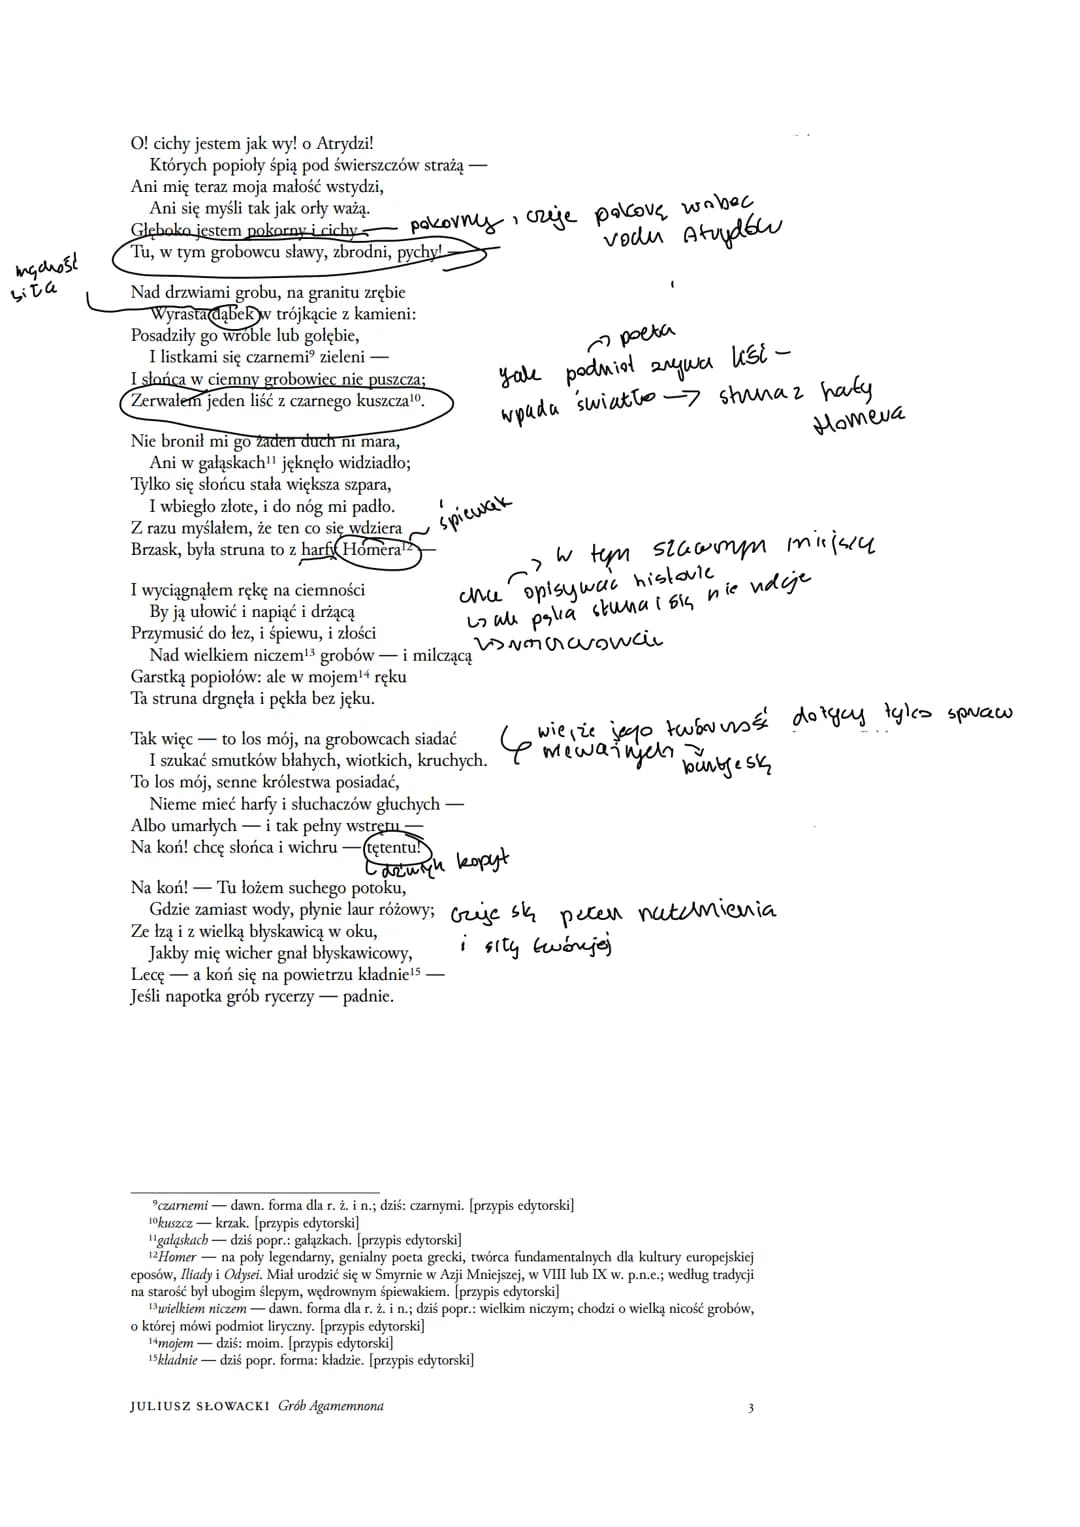 O! cichy jestem jak wy! o Atrydzi!
Których popioły śpią pod świerszczów strażą —
Ani mię teraz moja małość wstydzi,
Ani się myśli tak jak orły ważą.
Głęboko jestem pokorny i cichy
pokorny, czuje pokorę wobec
rodu Atrydów
Tu, w tym grobowcu sławy, zbrodni, pychy! —
mądrość
siła
Nad drzwiami grobu, na granitu zrębie
Wyrasta dąbek w trójkącie z kamieni:
Posadziły go wróble lub gołębie,
I listkami się czarnemi⁹ zieleni —
I słońca w ciemny grobowiec nie puszcza;
Zerwałem jeden liść z czarnego kuszcza¹⁰.
poeta
podmiot zrywa liść –
wpada światło → struna z harfy
Homera
Nie bronił mi go żaden duch ni mara,
Ani w gałąskach¹¹ jęknęło widziadło;
Tylko się słońcu stała większa szpara,
I wbiegło złote, i do nóg mi padło.
Z razu myślałem, że ten co się wdziera
śpiewak
Brzask, była struna to z harfy Homera¹² —
→ w tym sławnym miejscu
chce opisywać historie
↳ ale pęka struna i się nie udaje
↳ rozczarowanie
I wyciągnąłem rękę na ciemności
By ją ułowić i napiąć i drżącą
Przymusić do łez, i śpiewu, i złości
Nad wielkiem niczem¹³ grobów — i milczącą
Garstką popiołów: ale w mojem¹⁴ ręku
Ta struna drgnęła i pękła bez jęku.
Tak więc — to los mój, na grobowcach siadać
I szukać smutków błahych, wiotkich, kruchych.
wie, że jego twórczość dotyczy tylko spraw
nieważnych →
buntuje się
To los mój, senne królestwa posiadać,
Nieme mieć harfy i słuchaczów głuchych —
Albo umarłych — i tak pełny wstrętu —
Na koń! chcę słońca i wichru — tętentu!
dźwięk kopyt
Na koń! — Tu łożem suchego potoku,
Gdzie zamiast wody, płynie laur różowy;
czuje się pełen natchnienia
i siły twórczej
Ze łzą i z wielką błyskawicą w oku,
Jakby mię wicher gnał błyskawicowy,
Lecę — a koń się na powietrzu kładnie¹⁵ —
Jeśli napotka grób rycerzy — padnie.
⁹czarnemi — dawn. forma dla r. ż. i n.; dziś: czarnymi. [przypis edytorski]
¹⁰kuszcz — krzak. [przypis edytorski]
¹¹gałąskach — dziś popr.: gałązkach. [przypis edytorski]
¹²Homer — na poły legendarny, genialny poeta grecki, twórca fundamentalnych dla kultury europejskiej
eposów, Iliady i Odysei. Miał urodzić się w Smyrnie w Azji Mniejszej, w VIII lub IX w. p.n.e.; według tradycji
na starość był ubogim ślepym, wędrownym śpiewakiem. [przypis edytorski]
¹³wielkiem niczem — dawn. forma dla r. ż. i n.; dziś popr.: wielkim niczym; chodzi o wielką nicość grobów,
o której mówi podmiot liryczny. [przypis edytorski]
¹⁴mojem — dziś: moim. [przypis edytorski]
¹⁵kładnie — dziś popr. forma: kładzie. [przypis edytorski]
JULIUSZ SŁOWACKI Grób Agamemnona
3